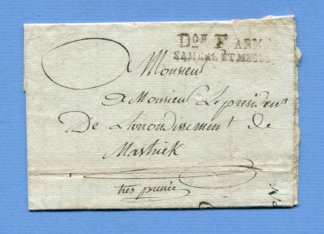 Don F ARM
SAMBRE ET MEUSE
Monsieur
A Monsieur Le président
De L'arrondissement de
Mastrick
très pressée